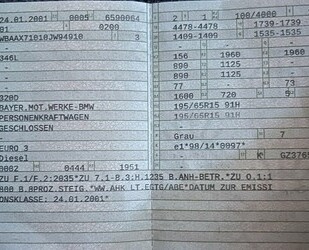 24.01.2001 0005 6590064
01 0200
WBAAX71010JW94910 3
-
346L
-
-
320D
BAYER.MOT.WERKE-BMW
PERSONENKRAFTWAGEN
GESCHLOSSEN
-
EURO 3
Diesel
0002 0444 1951
2 1 100/4000
4478-4478 1739-1739
1409-1409 1535-1535
-
156 1960 1960
890 1125
890 1125
77 - 73
1600 720 5
195/65R15 91H
195/65R15 91H
-
-
Grau 7
e1*98/14*0097*
-
K GZ376
ZU F.1/F.2:2035*ZU 7.1-8.3:H.1235 B.ANH-BETR.*ZU O.1:1
800 B.8PROZ.STEIG.*WW.AHK LT.EGTG/ABE*DATUM ZUR EMISSI
ONSKLASSE: 24.01.2001*